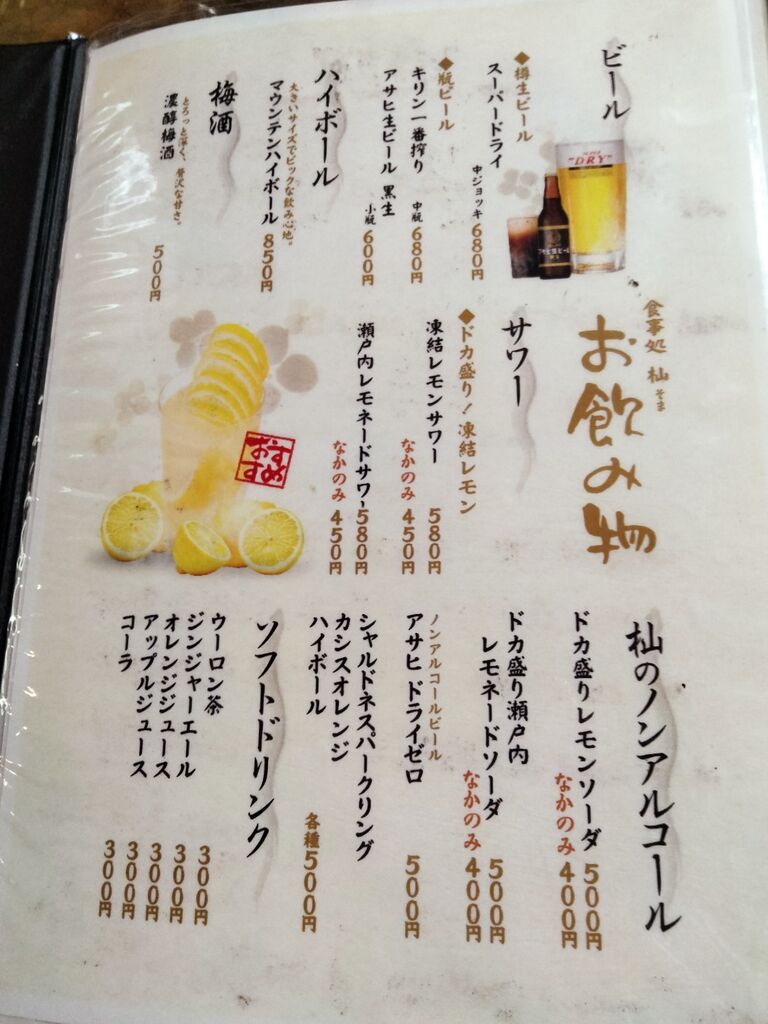 食事処 杣 そま
お飲み物
ビール
◆樽生ビール
スーパードライ 中ジョッキ 680円
◆瓶ビール
キリン一番搾り 中瓶 680円
アサヒ生ビール 黒生 小瓶 600円
ハイボール
大きいサイズでビックな飲み心地。
マウンテンハイボール 850円
梅酒
とろっと深く、贅沢な甘さ。
濃醇梅酒 500円
"DRY"
サワー
◆ドカ盛り!凍結レモン
凍結レモンサワー 580円
なかのみ 450円
瀬戸内レモネードサワー 580円
なかのみ 450円
おすすめ
杣のノンアルコール
ドカ盛りレモンソーダ 500円
なかのみ 400円
ドカ盛り瀬戸内
レモネードソーダ 500円
なかのみ 400円
ノンアルコールビール
アサヒ ドライゼロ 500円
シャルドネスパークリング
カシスオレンジ
ハイボール 各種500円
ソフトドリンク
ウーロン茶 300円
ジンジャーエール 300円
オレンジジュース 300円
アップルジュース 300円
コーラ 300円